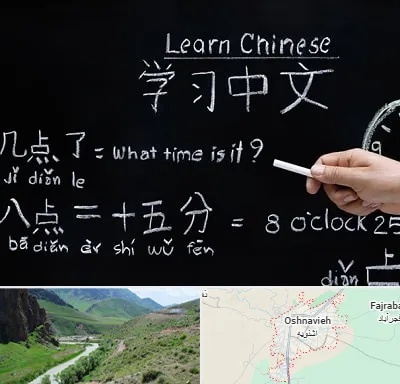 Learn Chinese
学习中文
几点了 = what time is it?
jǐ diǎn le
八点二十五分 = 8 o'clock 25
bā diǎn èr shí wǔ fēn
diǎn
Oshnavieh
اشنویه
Fajraba
فجرآباد